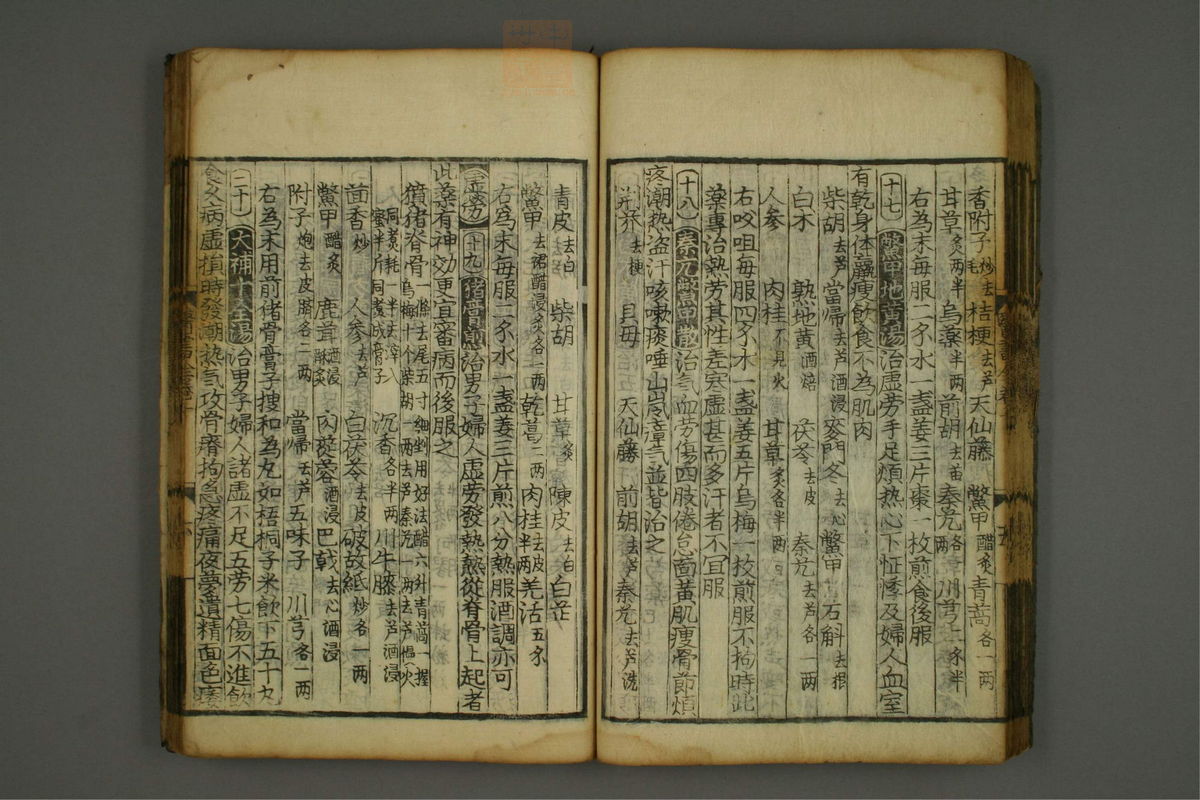 香附子炒去毛 桔梗去芦 天仙藤 鱉甲醋炙 青蒿各一兩
甘草炙一兩半 烏藥半兩 前胡去苗 秦艽各 川芎二
右為末每服二水一盞姜三片棗一枚煎食後服
十七 鱉甲地黄湯 治虚劳手足煩热心下怔悸及婦人血室
有乾身体羸瘦飲食不為肌肉
柴胡去芦 當歸去芦酒浸 麥門冬去心 鱉甲 石斛去根
白术 熟地黄酒焙 茯苓去皮 秦艽去芦各一兩
人参 肉桂不見火 甘草炙各半兩
右㕮咀每服四水一盞姜五片烏梅一枚煎服不拘時此
藥專治熱劳其性差寒虚甚而多汗者不宜服
十八 秦艽鱉甲散 治气血劳傷四肢倦怠面黄肌瘦骨節煩
疼潮热盗汗咳嗽痰唾山嵐瘴气並皆治之
荆芥去梗 貝母 天仙藤 前胡去芦 秦艽去芦洗
青皮去白 柴胡 甘草炙 陳皮去白 白芷
鱉甲去裙醋浸炙各一兩 乾葛二兩 肉桂去皮半兩 羌活五
右為末每服二水一盞姜三片煎八分熱服酒調亦可
虚劳 十九 猪骨煎 治男子婦人虚劳發熱熱從脊骨上起者
此藥有神効更宜審病而後服之
獖猪脊骨一條去尾五寸細剉用好法醋六升青蒿一握
烏梅十个柴胡一兩去芦秦艽一兩去芦慢火
同煮耗一半去滓入蜜半斤同煮成膏子 沉香各半兩 川牛膝去芦酒浸
茴香炒 人参去芦 白茯苓去皮 破故紙炒各一兩
鱉甲醋炙 鹿茸酒浸酥炙 肉蓯蓉酒浸 巴戟去心酒浸
附子炮去皮臍各二兩 當歸去芦 五味子 川芎各一兩
右為末用前猪骨膏子搜和為丸如梧桐子米飲下五十丸
二十 大補十全湯 治男子婦人諸虚不足五劳七傷不進飲
食久病虚損時發潮热气攻骨脊拘急疼痛夜夢遺精面色痿